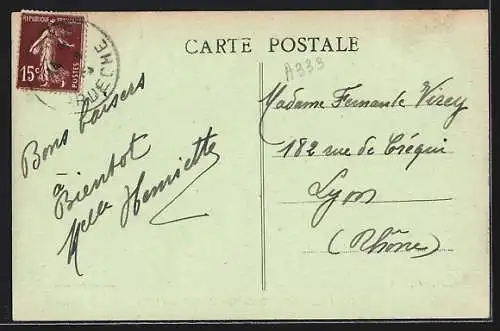 REPUBLIQUE FRANÇAISE
15c POSTES
ARDECHE
CARTE POSTALE
A333
Bons baisers
a
Bientot
Melle Henriette
Madame Fernande Virey
182 rue de Créqui
Lyon
(Rhône)